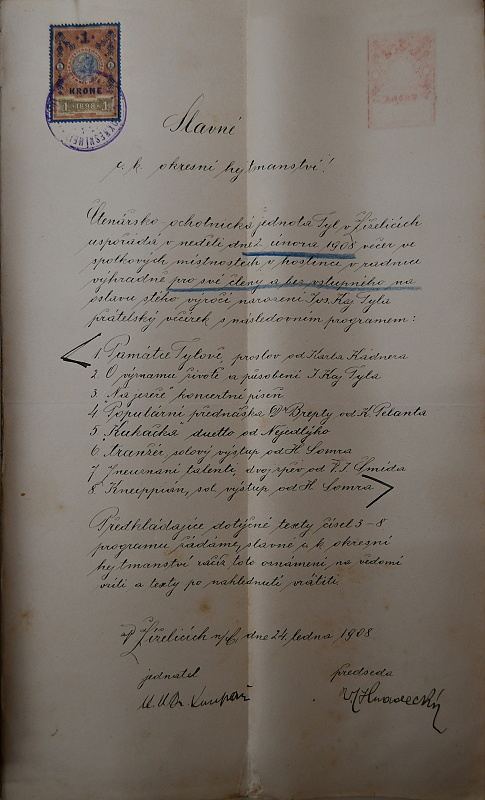 1
KRONE
1 1898 1
Slavné
c. k. okresní hejtmanství!
Čtenářsko-ochotnická jednota Tyl v Žiželicích
uspořádá v neděli dne 2 února 1908 večer ve
spolkových místnostech v hostinci v radnice
výhradně pro své členy a bez vstupného na
oslavu stého výročí narození Jos Kaj Tyla
přátelský večírek s následovním programem:
1. Památce Tylově, proslov od Karla Kádnera
2. O významu životě a působení J Kaj Tyla
3. Na jezeře koncertní píseň
4. Populární přednáška Dr od K. Pelanta
5. "Kukačka" duetto od Nejedlýho
6. Tranžér solový výstup od H. Šomra
7. Neuznaní talenti, dvojzpěv od F. J Šmída
8. Kneippián, sol. výstup od H. Šomra
Předkládajíce dotyčné texty čísel 3-8
programu žádáme, slavné c. k. okresní
hejtmanství račiž toto oznámení na vědomí
vzíti a texty po nahlédnutí vrátiti.
Žiželicích n/C. dne 24. ledna 1908
jednatel
předseda